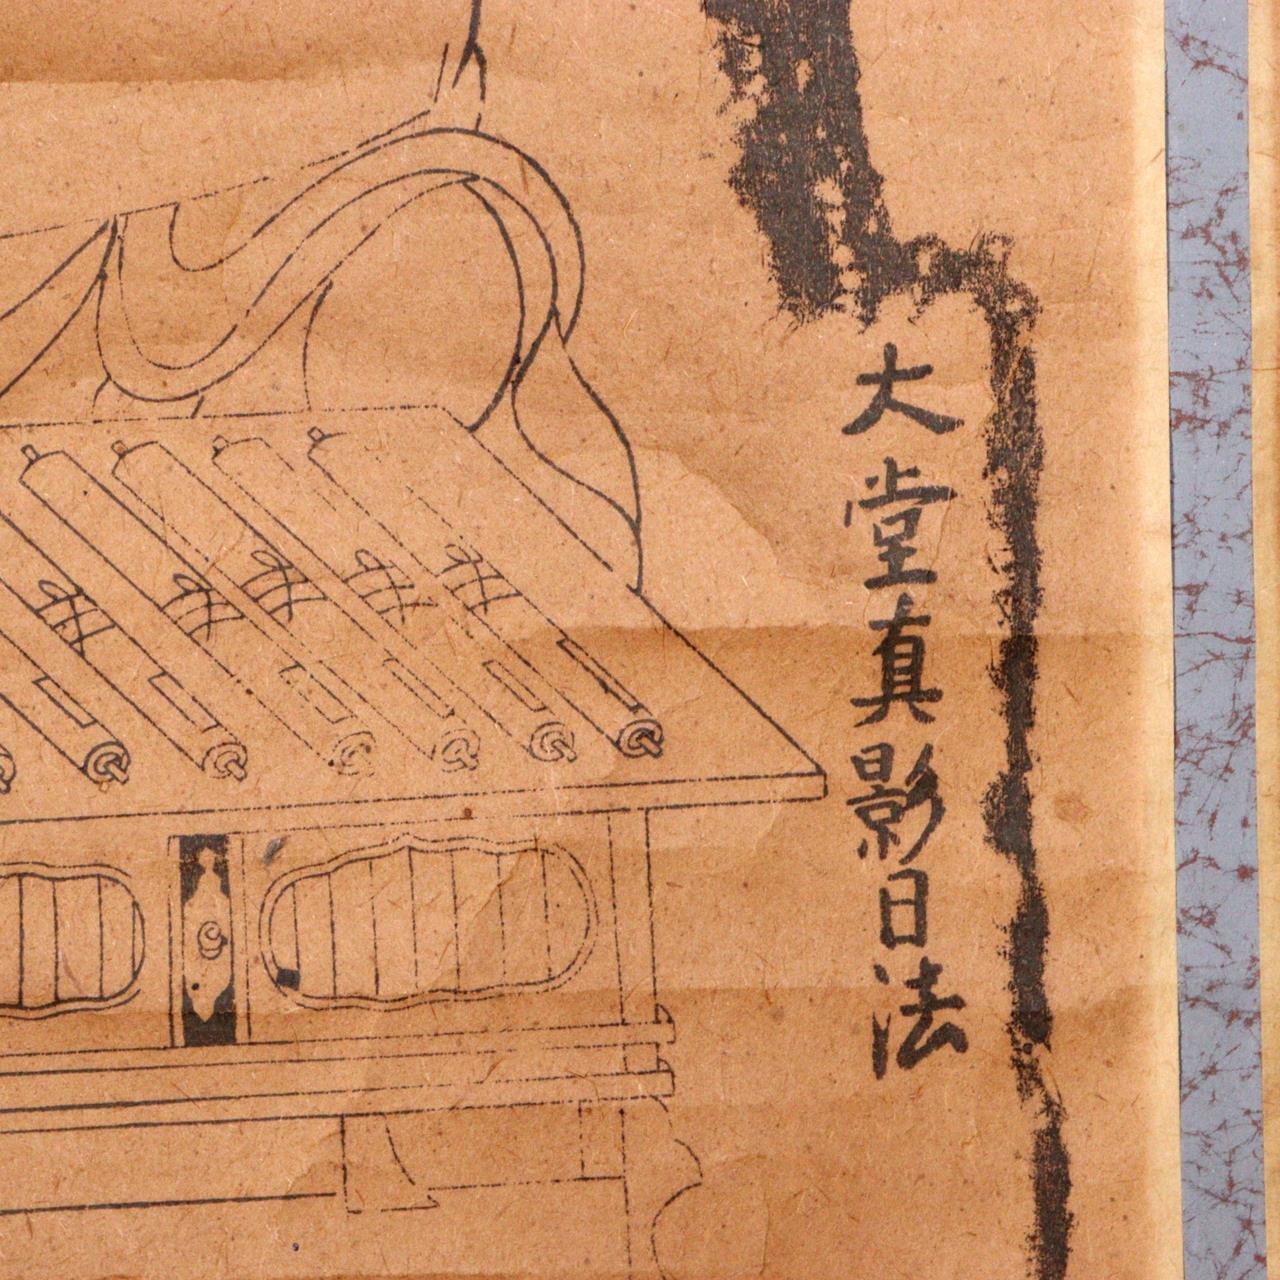 大堂真影日法